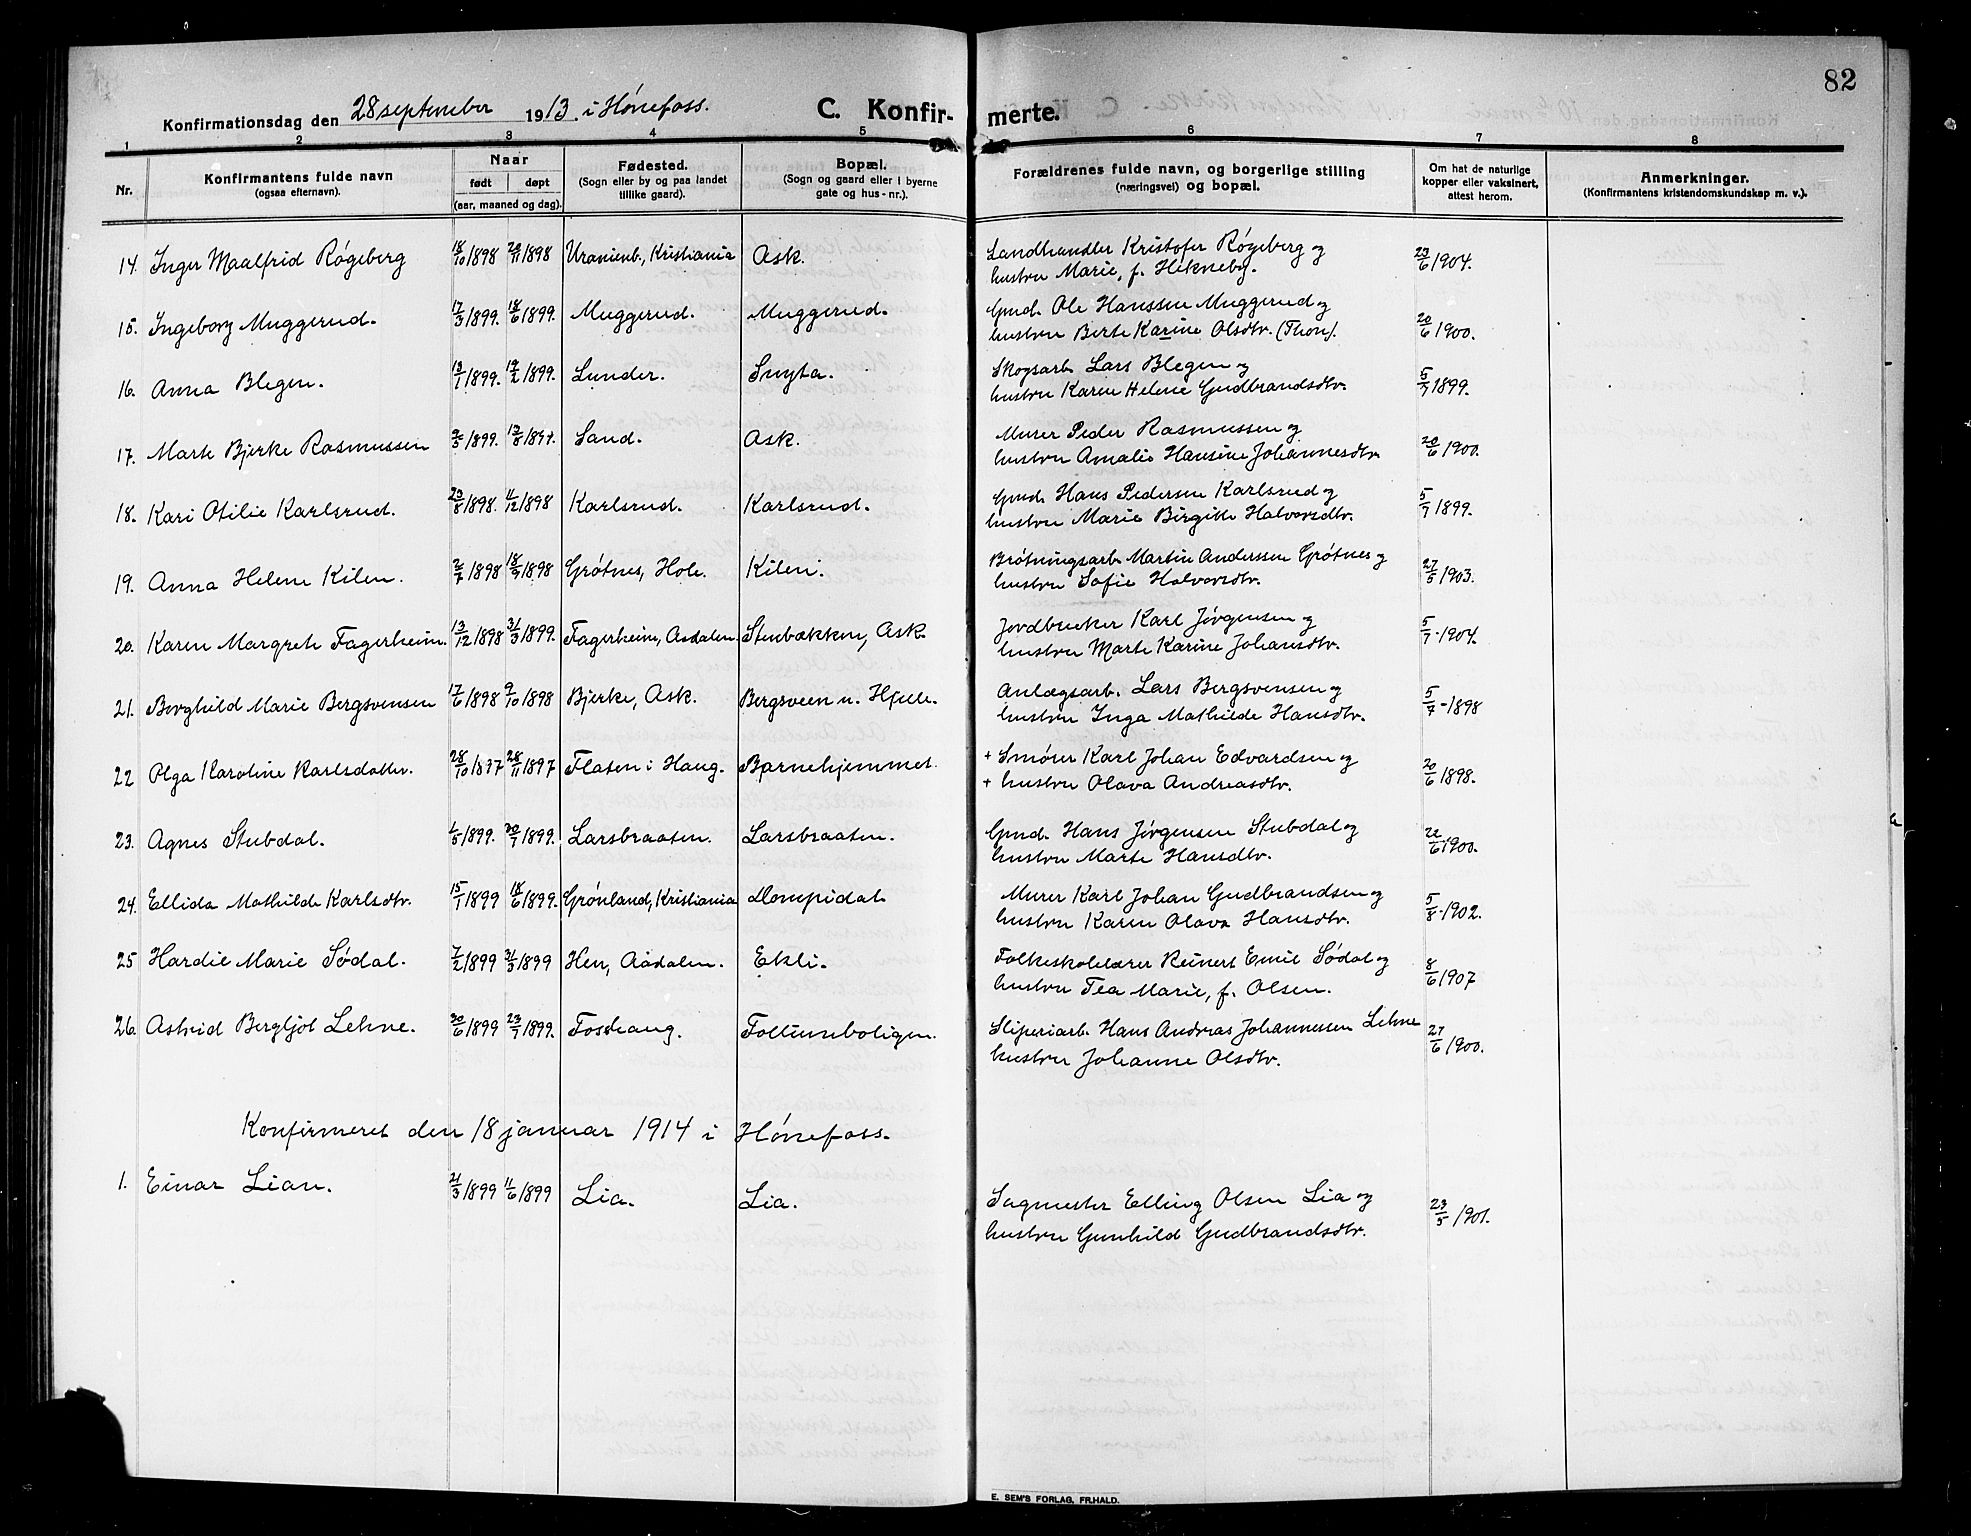 82
Konfirmationsdag den 28 september 1913 i Hónefoss. C. Konfir- merte.
1 2 3 4 5 6 7 8
Nr. Konfirmantens fulde navn (ogsaa efternavn). Naar født døpt (aar, maaned og dag). Fødested. (Sogn eller by og paa landet tillike gaard). Bopæl. (Sogn og gaard eller i byerne gate og hus-nr.). Forældrenes fulde navn, og borgerlige stilling (næringsvei) og bopæl. Om hat de naturlige kopper eller vaksinert, attest herom. Anmerkninger. (Konfirmantens kristendomskundskap m. v.).
14. Inger Maalfrid Rógeberg 18/10 1898 20/11 1898 Uranienb., Kristiania Ask. Landhandler Kristofer Rógeberg og 23/6 1904.
hustru Marie, f. Hekneby.
15. Ingeborg Muggerud. 17/3 1899. 18/6 1899. Muggerud. Muggerud. Gmd. Ole Hanssen Muggerud og
hustru Berte Karine Olsdtr. (Thon). 20/6 1900.
16. Anna Blegen. 13/1 1899. 19/2 1899. Lunder. Snyta. Skogsarb. Lars Blegen og
hustru Karen Helene Gudbrandsdtr. 5/7 1899.
17. Marte Bjerke Rasmussen 2/5 1899. 13/8 1899. Sand. Ask. Murer Peder Rasmussen og
hustru Amalie Hansine Johannesdtr. 20/6 1900.
18. Kari Otilie Karlsrud. 23/8 1898. 4/12 1898 Karlsrud. Karlsrud. Gmd. Hans Pedersen Karlsrud og
hustru Marie Birgitte Halvorsdtr. 5/7 1899.
19. Anna Helene Kilen. 2/7 1898 18/9 1898 Grótnes, Hole. Kilen. Brótningsarb. Martin Anderssen Grótnes og
hustru Sofie Halvorsdtr. 27/5 1903.
20. Karen Margrete Fagerheim. 13/12 1898 31/3 1899. Fagerheim, Aadalen. Stenbækken, Ask. Jordbruker Karl Jórgensen og
hustru Marte Karine Johansdtr. 5/7-1904.
21. Borghild Marie Bergsvensen 17/6 1898 9/10 1898 Bjerke, Ask. Bergsveen u. Hjelle. Anlægsarb. Lars Bergsvensen og
hustru Inga Mathilde Hansdtr. 5/7-1898
22 Olga Karoline Karlsdatter. 28/10 1897 28/11 1897 Flaten i Haug. Barnehjemmet. + Smører Karl Johan Edvardsen og
+ hustru Olava Andreasdtr. 20/6 1898.
23. Agnes Stubdal. 1/5 1899. 30/7 1899. Larsbraaten. Larsbraaten. Gmd. Hans Jórgensen Stubdal og
hustru Marte Hansdtr. 22/6 1900.
24. Ellida Mathilde Karlsdtr. 15/1 1899 18/6 1899. Grónland, Kristiania Dompidal. Murer Karl Johan Gudbrandsen og
hustru Karen Olava Hansdtr. 5/8-1902.
25 Hardie Marie Sódal. 7/2 1899 31/3 1899 Hen, Aadalen. Ekli. Folkeskolelærer Reinert Emil Sódal og
hustru Tea Marie, f. Olsen. 8/6 1907
26. Astrid Bergljot Lehne. 30/6 1899 23/7 1899. Fosshaug. Follumboligen. Sliperiarb. Hans Andreas Johannessen Lehne
hustru Johanne Olsdtr. 27/6 1900.
Konfirmeret den 18 januar 1914 i Hónefoss.
1. Einar Lian. 21/3 1899 11/6 1899 Lia. Lia. Sagmester Elling Olsen Lia og
hustru Gunhild Gudbrandsdtr. 23/5 1901.
E. SEM'S FORLAG, FR.HALD.